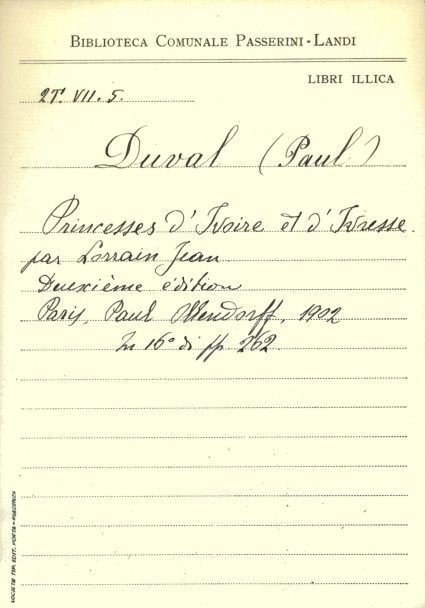 BIBLIOTECA COMUNALE PASSERINI-LANDI
LIBRI ILLICA
2T. VII. 5.
Duval (Paul)
Princesses d'Ivoire et d'Ivresse.
par Lorrain Jean
Deuxième édition
Paris, Paul Ollendorff, 1902
In 16° di pp 262
SOCIETÀ TIP. EDIT. PORTA-PIACENZA